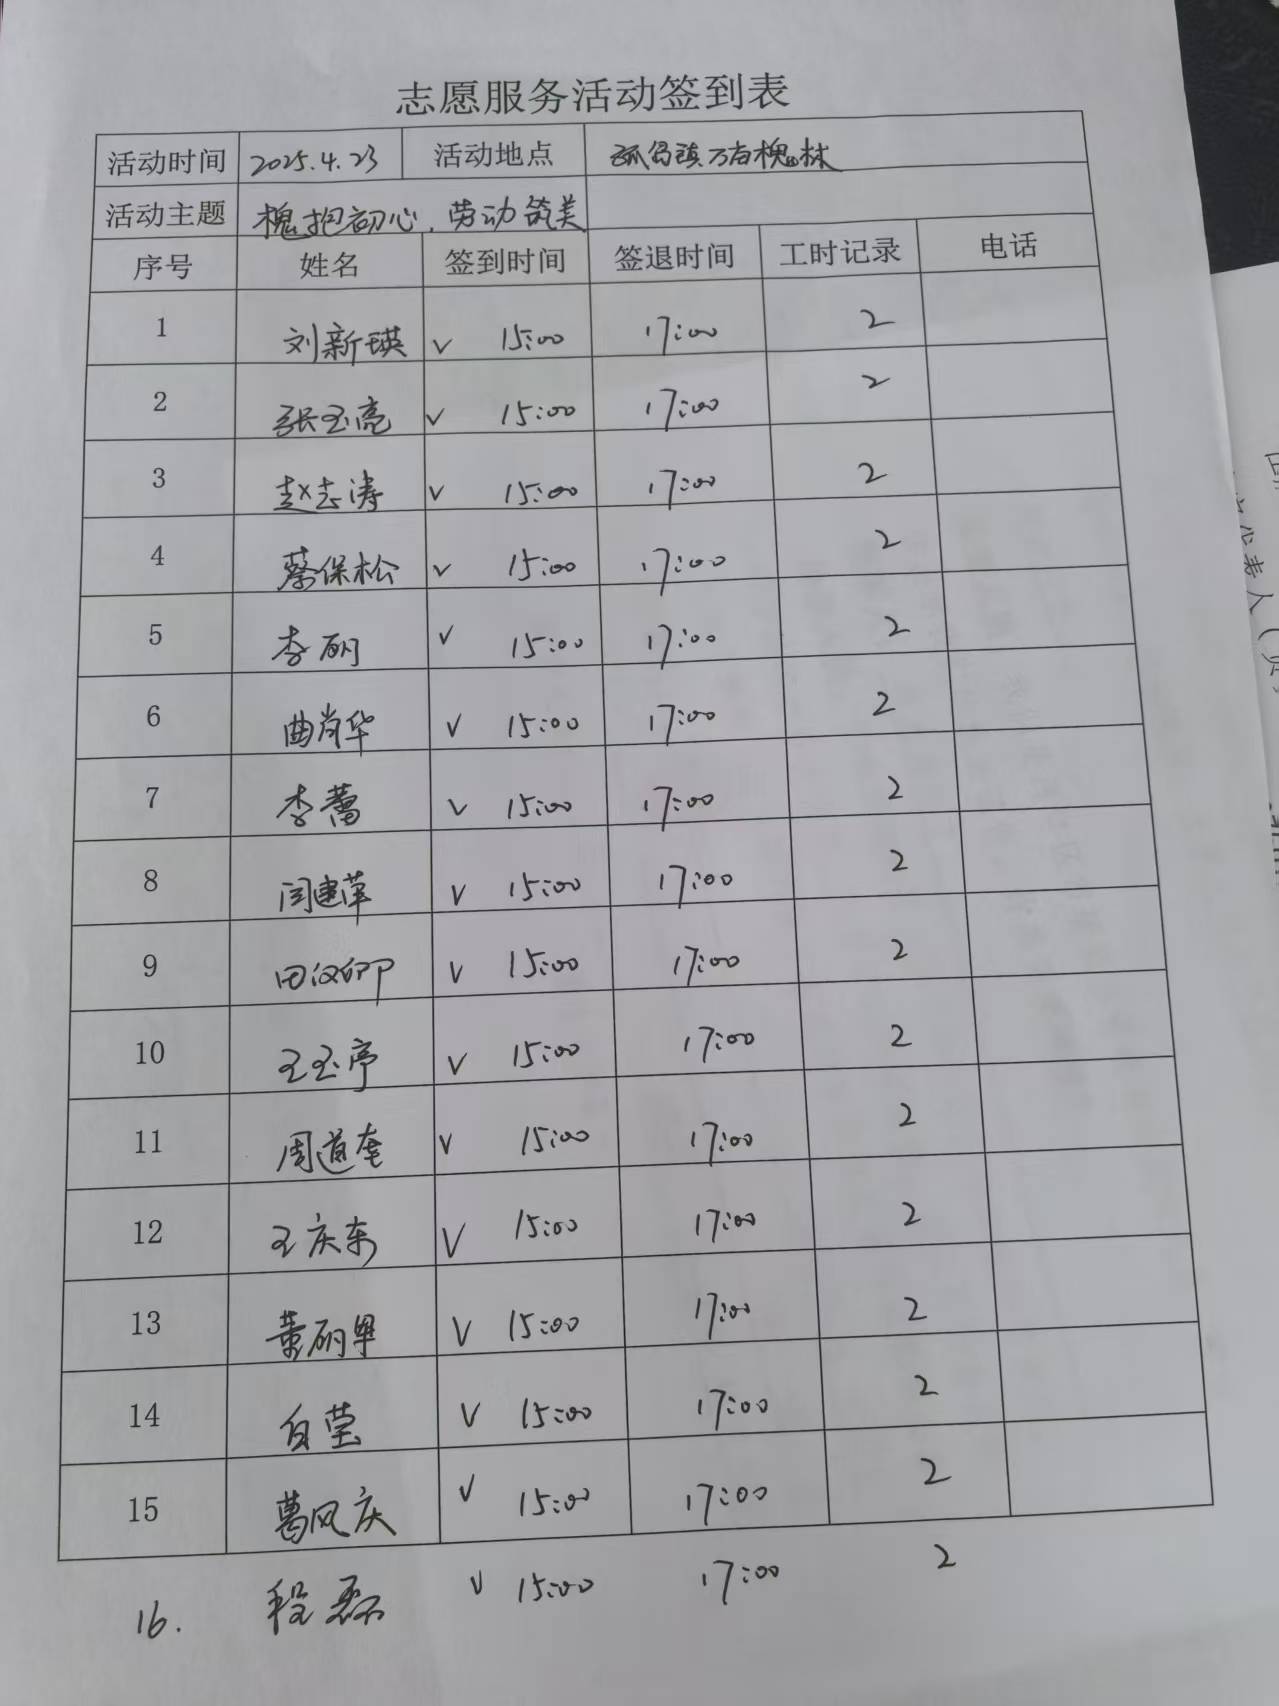 志愿服务活动签到表
活动时间 2025.4.23 活动地点 孤岛镇万亩槐林
活动主题 槐抱初心,劳动筑美
序号 姓名 签到时间 签退时间 工时记录 电话
1 刘新瑛 √ 15:00 17:00 2
2 张玉亮 √ 15:00 17:00 2
3 赵志涛 √ 15:00 17:00 2
4 蔡保松 √ 15:00 17:00 2
5 李丽 √ 15:00 17:00 2
6 曲肖华 √ 15:00 17:00 2
7 李蕾 √ 15:00 17:00 2
8 闫建革 √ 15:00 17:00 2
9 田汉卿 √ 15:00 17:00 2
10 王玉亭 √ 15:00 17:00 2
11 周道奎 √ 15:00 17:00 2
12 王庆东 √ 15:00 17:00 2
13 董丽果 √ 15:00 17:00 2
14 白莹 √ 15:00 17:00 2
15 葛风庆 √ 15:00 17:00 2
16. 程磊 √ 15:00 17:00 2
代表人(